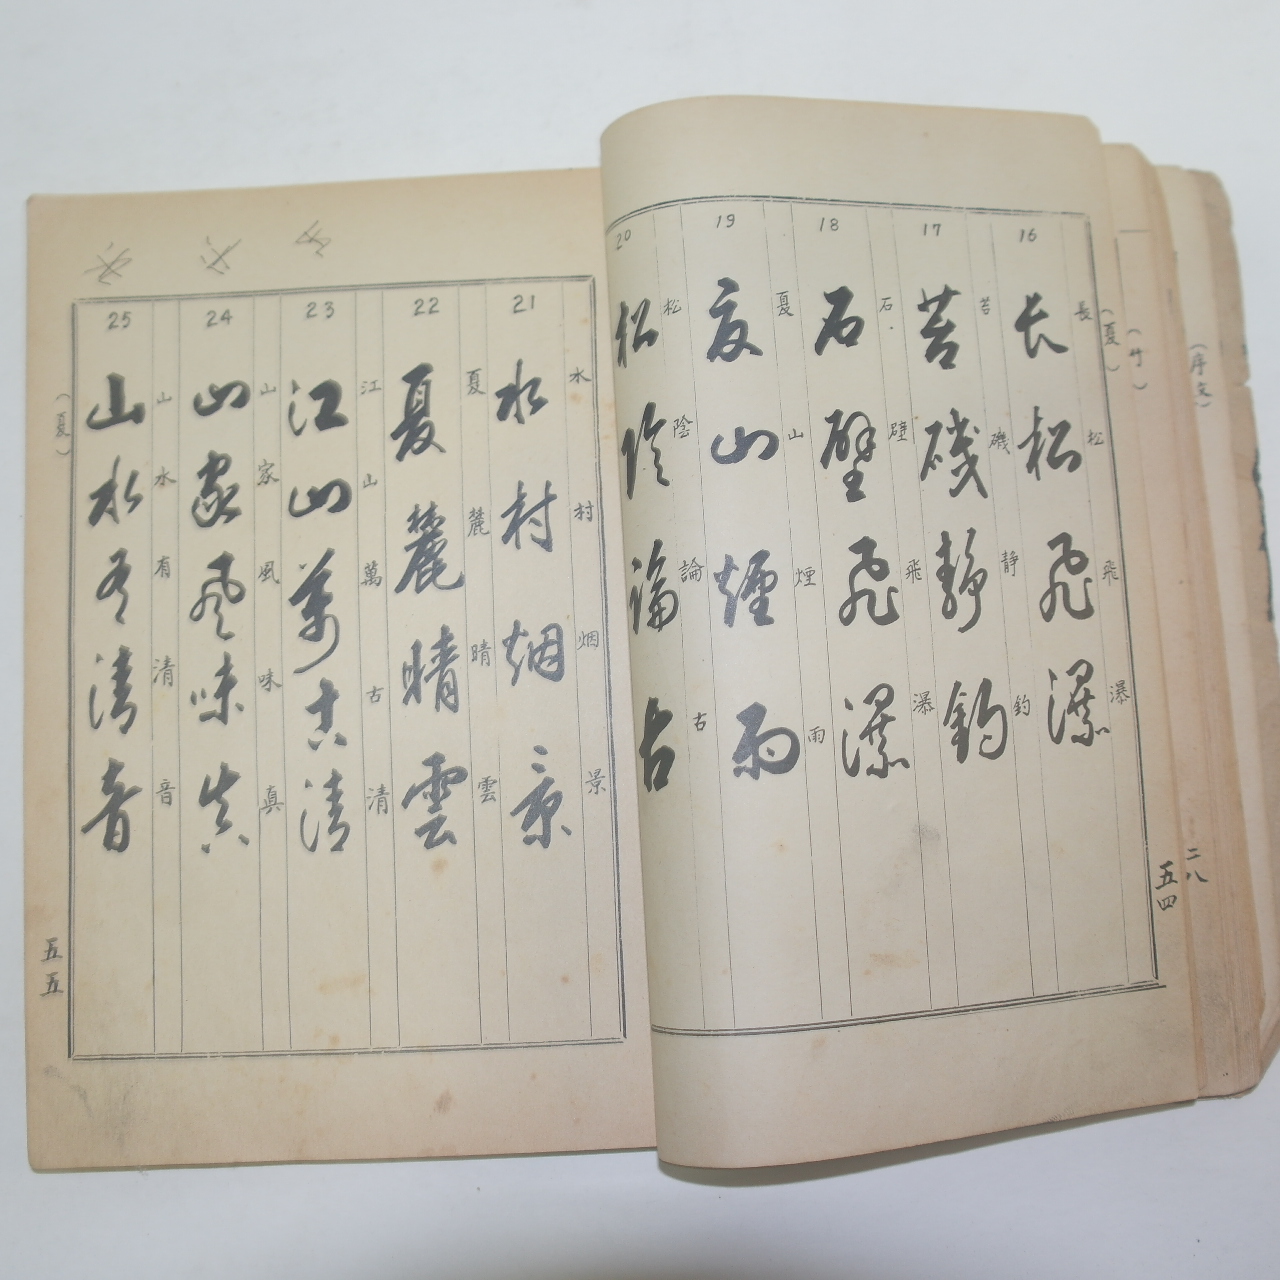 (序文)
二八
(竹)
(夏)
五四
16
长松飛瀑
長松飛瀑
17
苔磯静釣
苔磯静釣
18
石壁飛瀑
石壁飛瀑
19
夏山煙雨
夏山煙雨
20
松陰論古
松陰論古
21
水村烟景
水村烟景
22
夏麓晴雲
夏麓晴雲
23
江山萬古清
江山萬古清
24
山家風味真
山家風味真
25
山水有清音
山水有清音
(夏)
五五